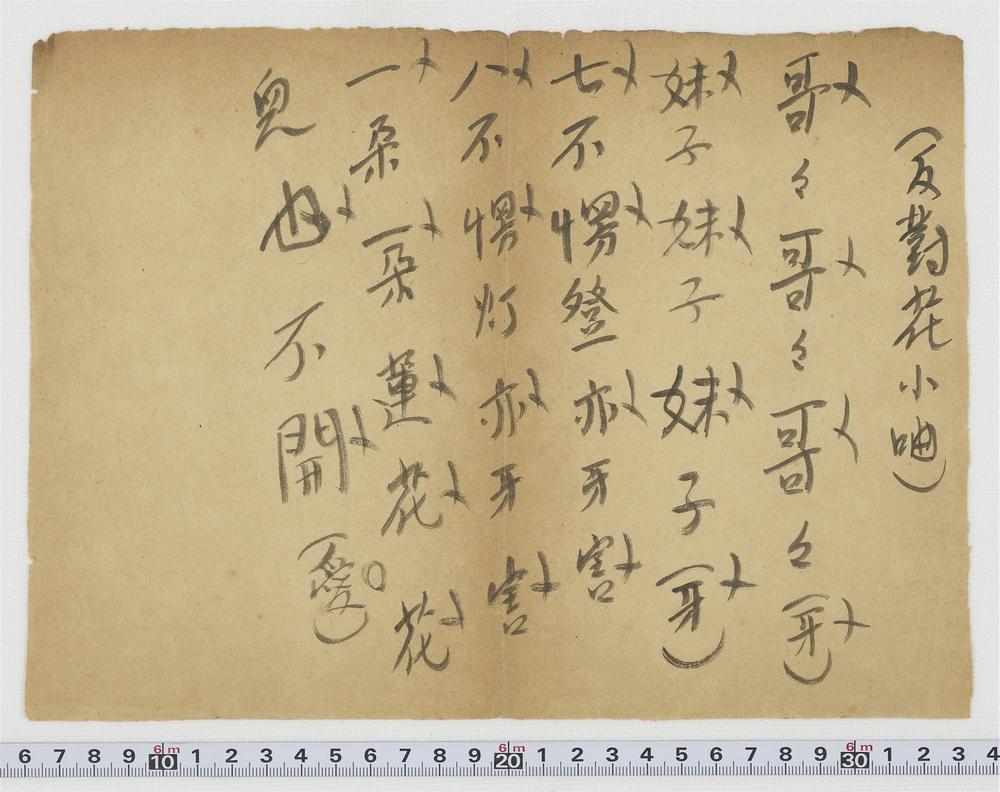 (反對花小呭)
哥々哥々哥々(牙)
妹子妹子妹子(牙)
七不愣登亦牙割
八不愣灯亦牙割
一朵一朵蓮花花
兒也不開(爱)
6 7 8 9 10 1 2 3 4 5 6 7 8 9 20 1 2 3 4 5 6 7 8 9 30 1 2 3 4
6m 6m 6m